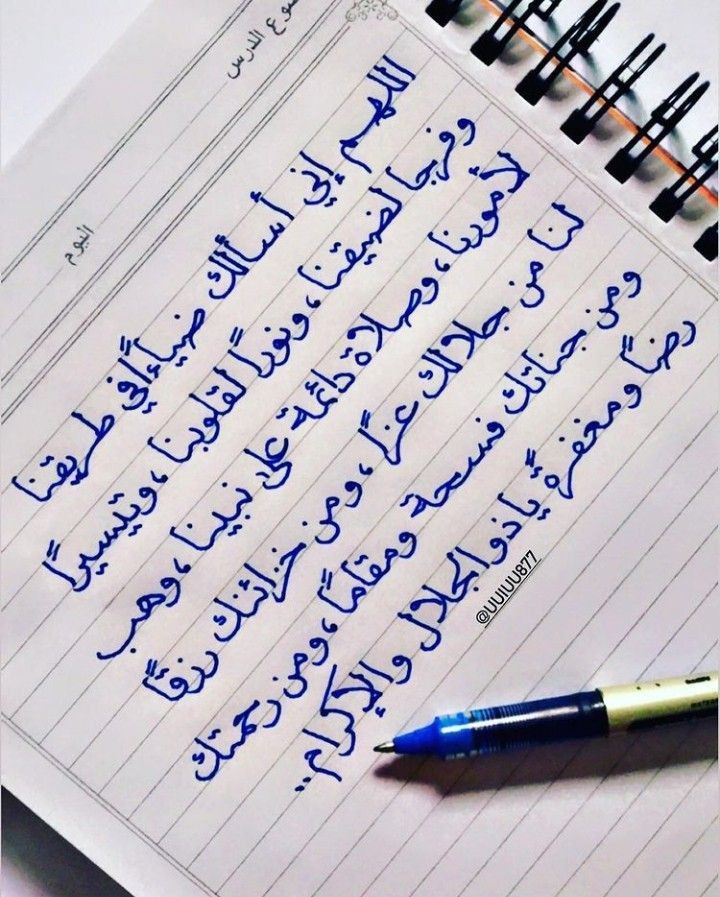 ضوع الدرس
اليوم
اللهم إني أسألك ضياءً في طريقنا
وفرجا لضيقنا، ونورًا لقلوبنا، وتيسيرًا
لأمورنا، وصلاة دائمة على نبينا، وهب
لنا من جلالك عزًا، ومن خزائنك رزقًا
ومن جناتك فسحة ومقامًا، ومن رحمتك
رضًا ومغفرةً ياذو الجلال والإكرام..
@UUIUU877